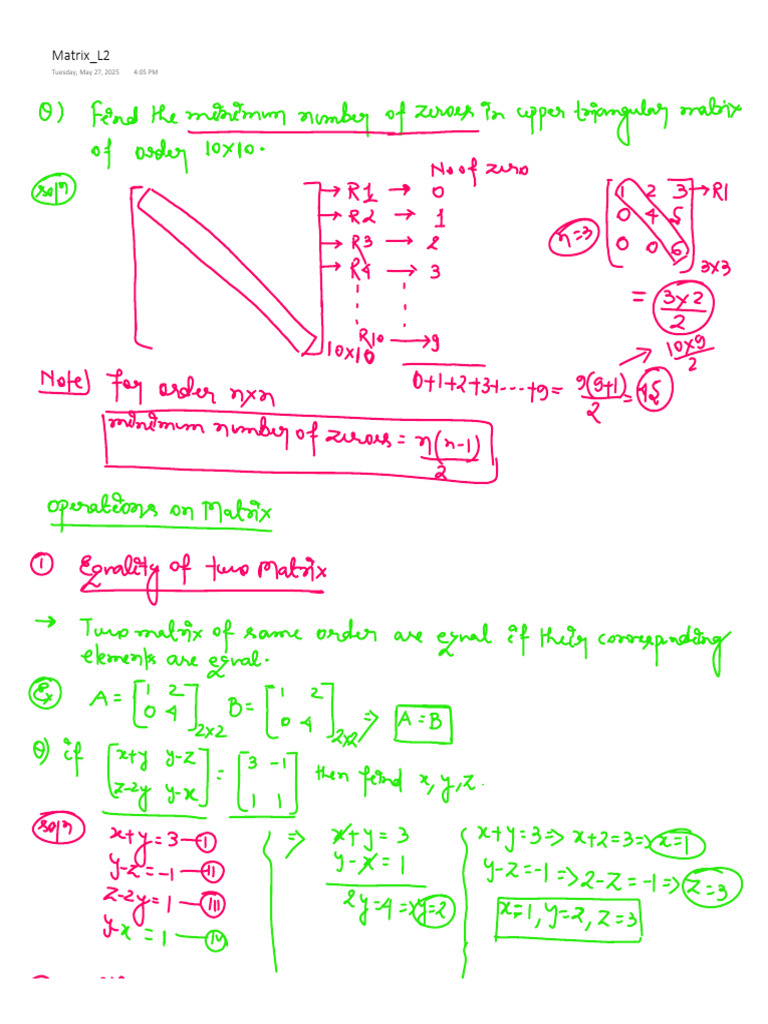 Matrix_L2
Tuesday, May 27, 2025 4:05 PM
Q) Find the minimum number of zeroes in upper triangular matrix
of order 10×10.
Sol^n
No of zero
→ R1 → 0
→ R2 → 1
→ R3 → 2
→ R4 → 3
R10 → 9
10×10
n=3
1 2 3 → R1
0 4 5
0 0 6
3×3
= 3×2/2
0+1+2+3+----+9 = 9(9+1)/2 = 45
→ 10×9/2
Note) For order n×n
minimum number of zeroes = n(n-1)/2
Operations on Matrix
① Equality of two Matrix
→ Two matrix of same order are equal if their corresponding
elements are equal.
Ex A = [1 2 B = [1 2
0 4]2×2 0 4]2×2 => A = B
Q) if [x+y y-z = [3 -1 then find x, y, z.
z-2y y-x] 1 1]
Sol^n
x+y = 3 — I
y-z = -1 — II
z-2y = 1 — III
y-x = 1 — IV
=> x+y = 3
y-x = 1
2y = 4 => y=2
x+y=3 => x+2=3 => x=1
y-z=-1 => 2-z=-1 => z=3
x=1, y=2, z=3